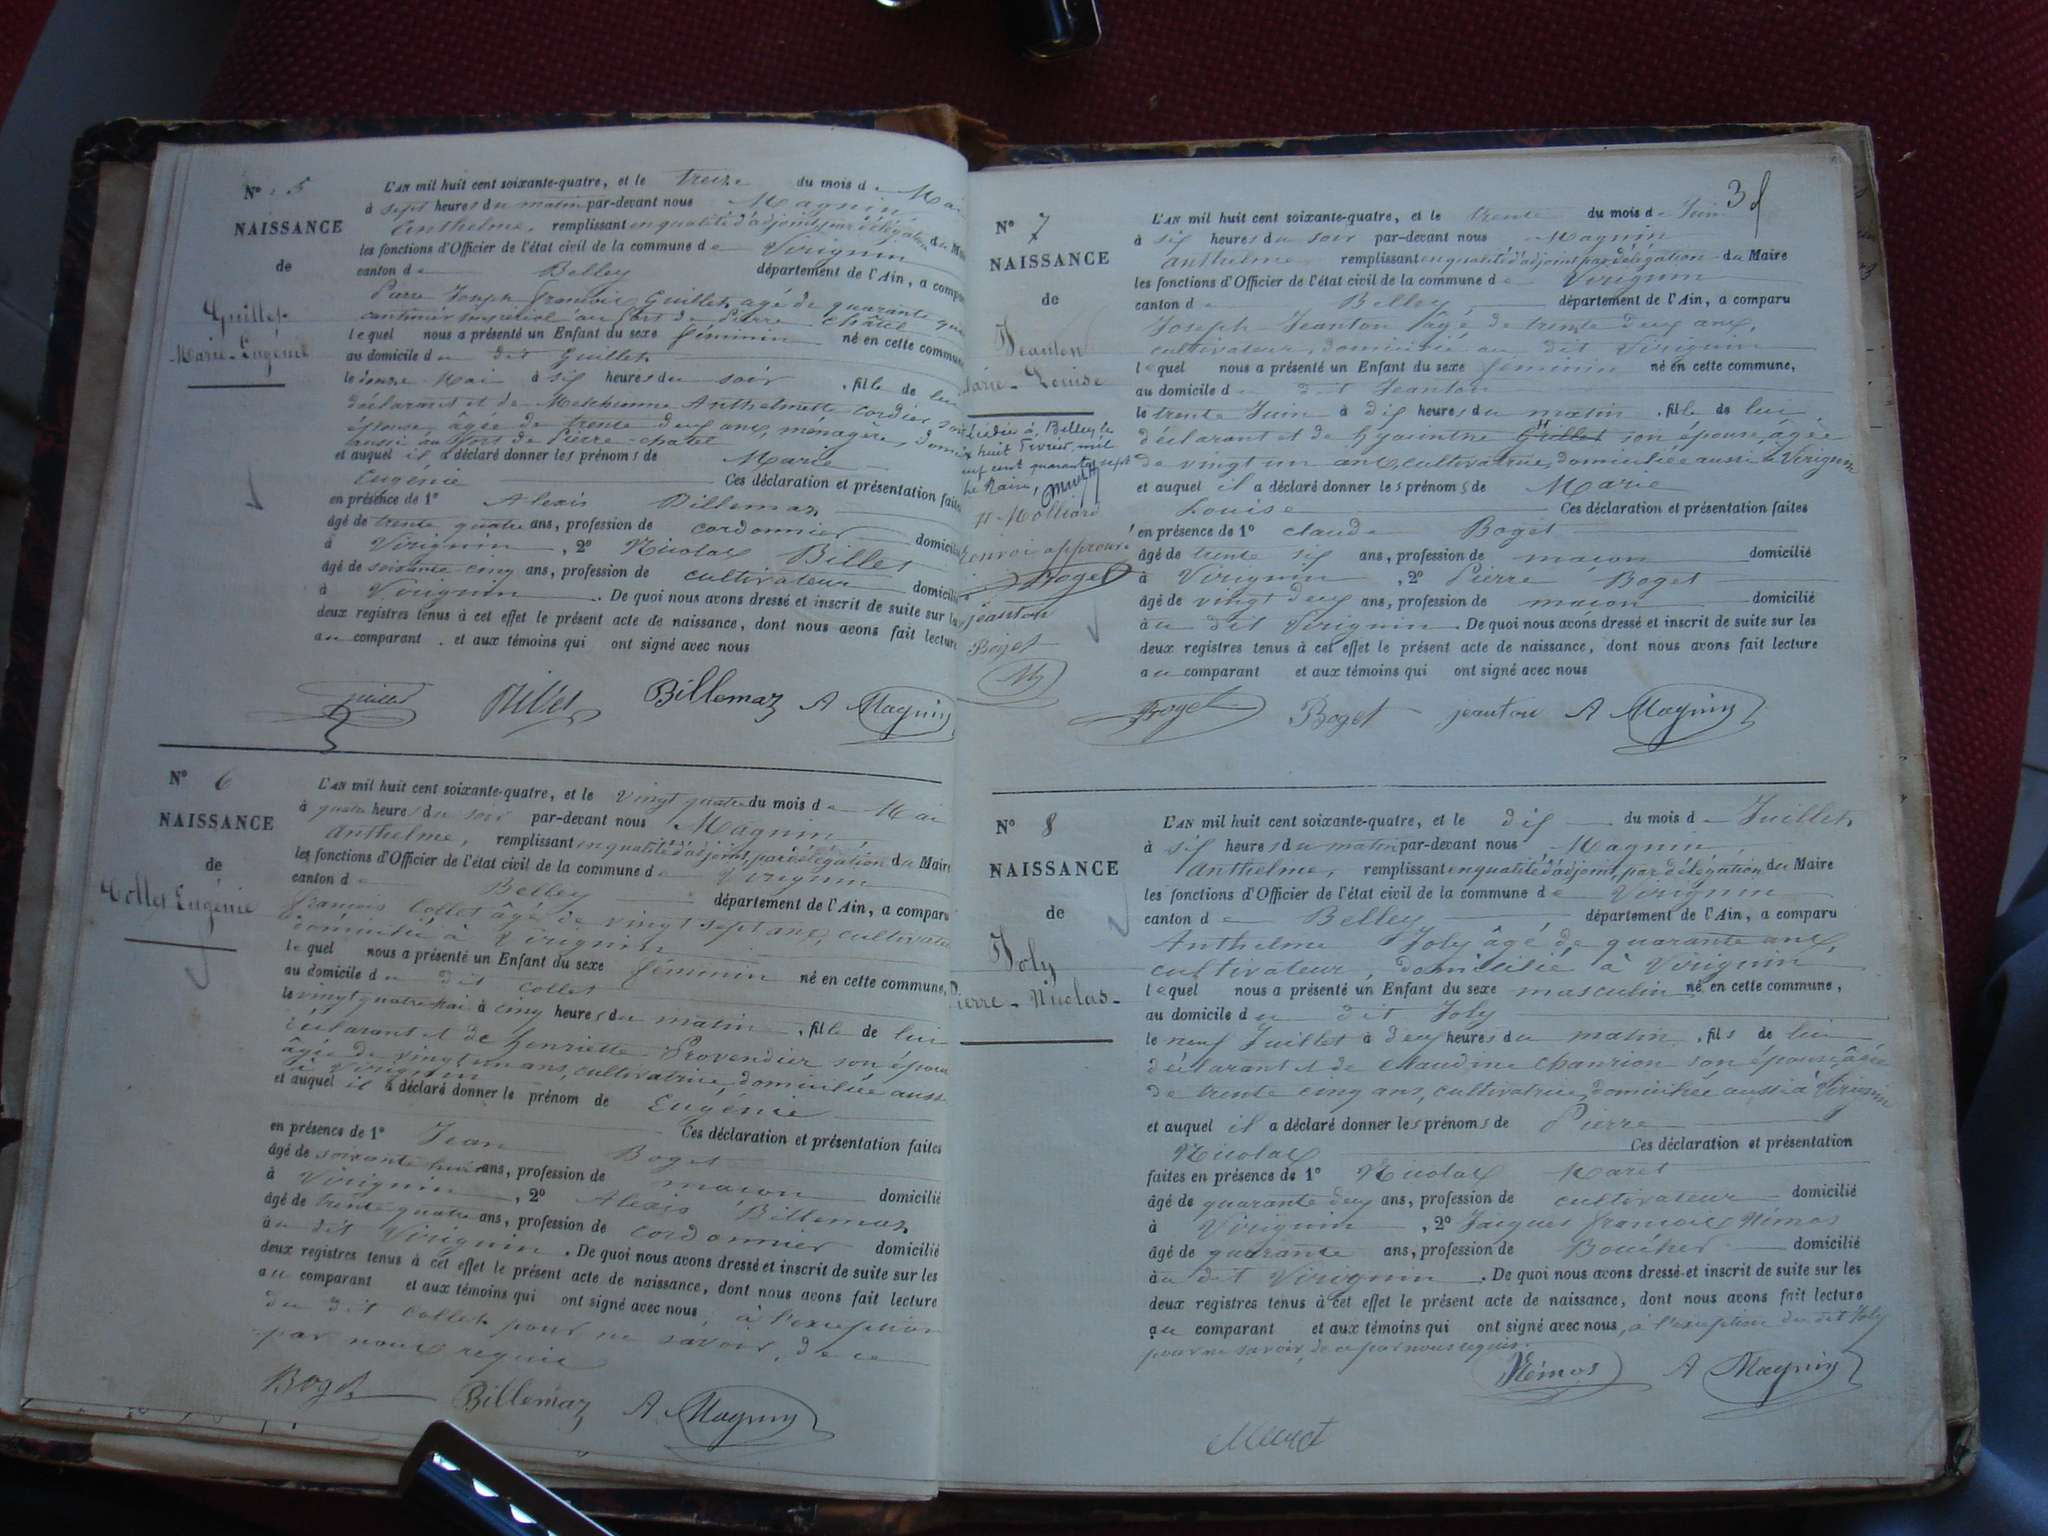 N° 5
NAISSANCE
de
Guillet
Marie-Eugénie
L'AN mil huit cent soixante-quatre, et le treize du mois de Mai
à sept heures du matin par-devant nous Magnin
Anthelme, remplissant en qualité d'adjoint, par délégation du
les fonctions d'Officier de l'état civil de la commune de Virignin
canton de Belley département de l'Ain, a comparu
Pierre Joseph François Guillet, âgé de quarante
cantinier impérial au fort de Pierre châtel
lequel nous a présenté un Enfant du sexe féminin né en cette commune
au domicile du dit Guillet
le douze Mai à six heures du soir, fille de lui
déclarant et de Anthelmette Cordier, son
épouse, âgée de trente deux ans, ménagère,
aussi au fort de Pierre-chatel
et auquel il a déclaré donner les prénoms de Marie
Eugénie Ces déclaration et présentation faites
en présence de 1° Alexis Billemaz
âgé de trente quatre ans, profession de cordonnier domicilié
à Virignin, 2° Nicolas Billet
âgé de soixante cinq ans, profession de cultivateur domicilié
à Virignin. De quoi nous avons dressé et inscrit de suite sur les
deux registres tenus à cet effet le présent acte de naissance, dont nous avons fait lecture
au comparant. et aux témoins qui ont signé avec nous
guillet Billet Billemaz A Magnin
N° 6
NAISSANCE
de
Collet Eugénie
L'AN mil huit cent soixante-quatre, et le vingt quatre du mois de Mai
à quatre heures du soir par-devant nous Magnin
Anthelme, remplissant en qualité d'adjoint, par délégation du Maire
les fonctions d'Officier de l'état civil de la commune de Virignin
canton de Belley département de l'Ain, a comparu
François Collet âgé de vingt sept ans, cultivateur
domicilié à Virignin
lequel nous a présenté un Enfant du sexe féminin né en cette commune,
au domicile du dit Collet
le vingt quatre Mai à cinq heures du matin, fille de lui
déclarant et de henriette Provendier son épouse
âgée de vingt un ans, cultivatrice, domiciliée aussi
à Virignin
et auquel il a déclaré donner le prénom de Eugénie
Ces déclaration et présentation faites
en présence de 1° Jean Boget
âgé de soixante huit ans, profession de maçon domicilié
à Virignin, 2° Alexis Billemaz
âgé de trente quatre ans, profession de cordonnier domicilié
au dit Virignin. De quoi nous avons dressé et inscrit de suite sur les
deux registres tenus à cet effet le présent acte de naissance, dont nous avons fait lecture
au comparant et aux témoins qui ont signé avec nous, à l'exception
du dit Collet pour ne savoir, de ce
par nous requis
Boget Billemaz A Magnin
3
N° 7
NAISSANCE
de
Jeanton
Marie-Louise
Décédée à Belley le
huit Février mil
neuf cent quarante sept
Le Maire,
H Molliard
Renvoi approuvé
Boget
jeanton
Boget
M
L'AN mil huit cent soixante-quatre, et le trente du mois de Juin
à six heures du soir par-devant nous Magnin
Anthelme remplissant en qualité d'adjoint par délégation du Maire
les fonctions d'Officier de l'état civil de la commune de Virignin
canton de Belley département de l'Ain, a comparu
Joseph Jeanton âgé de trente deux ans,
cultivateur, domicilié au dit Virignin
lequel nous a présenté un Enfant du sexe féminin né en cette commune,
au domicile du dit Jeanton
le trente Juin à dix heures du matin, fille de lui
déclarant et de hyacinthe Guillet H son épouse, âgée
de vingt un ans, cultivatrice, domiciliée aussi à Virignin
et auquel il a déclaré donner les prénoms de Marie
Louise Ces déclaration et présentation faites
en présence de 1° Claude Boget
âgé de trente six ans, profession de maçon domicilié
à Virignin, 2° Pierre Boget
âgé de vingt deux ans, profession de maçon domicilié
au dit Virignin. De quoi nous avons dressé et inscrit de suite sur les
deux registres tenus à cet effet le présent acte de naissance, dont nous avons fait lecture
au comparant et aux témoins qui ont signé avec nous
Boget Boget jeanton A Magnin
N° 8
NAISSANCE
de
Joly
Pierre-Nicolas-
L'AN mil huit cent soixante-quatre, et le dix du mois de Juillet
à six heures du matin par-devant nous Magnin
Anthelme, remplissant en qualité d'adjoint, par délégation du Maire
les fonctions d'Officier de l'état civil de la commune de Virignin
canton de Belley département de l'Ain, a comparu
Anthelme Joly âgé de quarante ans,
cultivateur, domicilié à Virignin
lequel nous a présenté un Enfant du sexe masculin né en cette commune,
au domicile du dit Joly
le neuf Juillet à deux heures du matin, fils de lui
déclarant et de Claudine Chanrion son épouse, âgée
de trente cinq ans, cultivatrice, domiciliée aussi à Virignin
et auquel il a déclaré donner les prénoms de Pierre
Nicolas Ces déclaration et présentation
faites en présence de 1° Nicolas
âgé de quarante deux ans, profession de cultivateur domicilié
à Virignin, 2° Jacques François Némos
âgé de quarante ans, profession de Boucher domicilié
au dit Virignin. De quoi nous avons dressé et inscrit de suite sur les
deux registres tenus à cet effet le présent acte de naissance, dont nous avons fait lecture
au comparant et aux témoins qui ont signé avec nous, à l'exception du dit Joly
pour ne savoir, de ce par nous requis.
Némos A Magnin